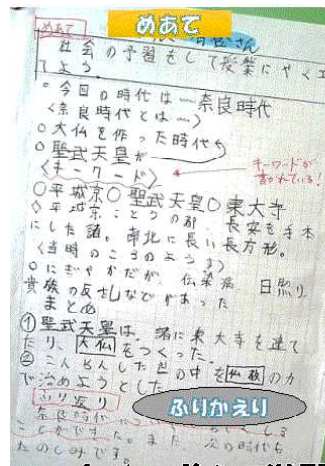 めあて
めあて
社会の予習をして授業にやく立
てよう。
○今回の時代は…奈良時代
〈奈良時代とは…〉
○大仏を作った時代
○聖武天皇が
〈キーワード〉
キーワードが
書かれている!
○平城京○聖武天皇○東大寺
◇平城京ことうの都、長安を手本
にした諸。南北に長い長方形。
〈当時のころのようす〉
○にぎやかだが、伝染病、日照り
貴族の反らしなどがあった
まとめ
①聖武天皇は、諸に東大寺を建て
たり、大仏をつくった。
②こんらんした世の中を仏教の力
で治めようとした
ふり返り
ふりかえり
奈良時代に
ことができた。また、次の時代も
たのしみです。